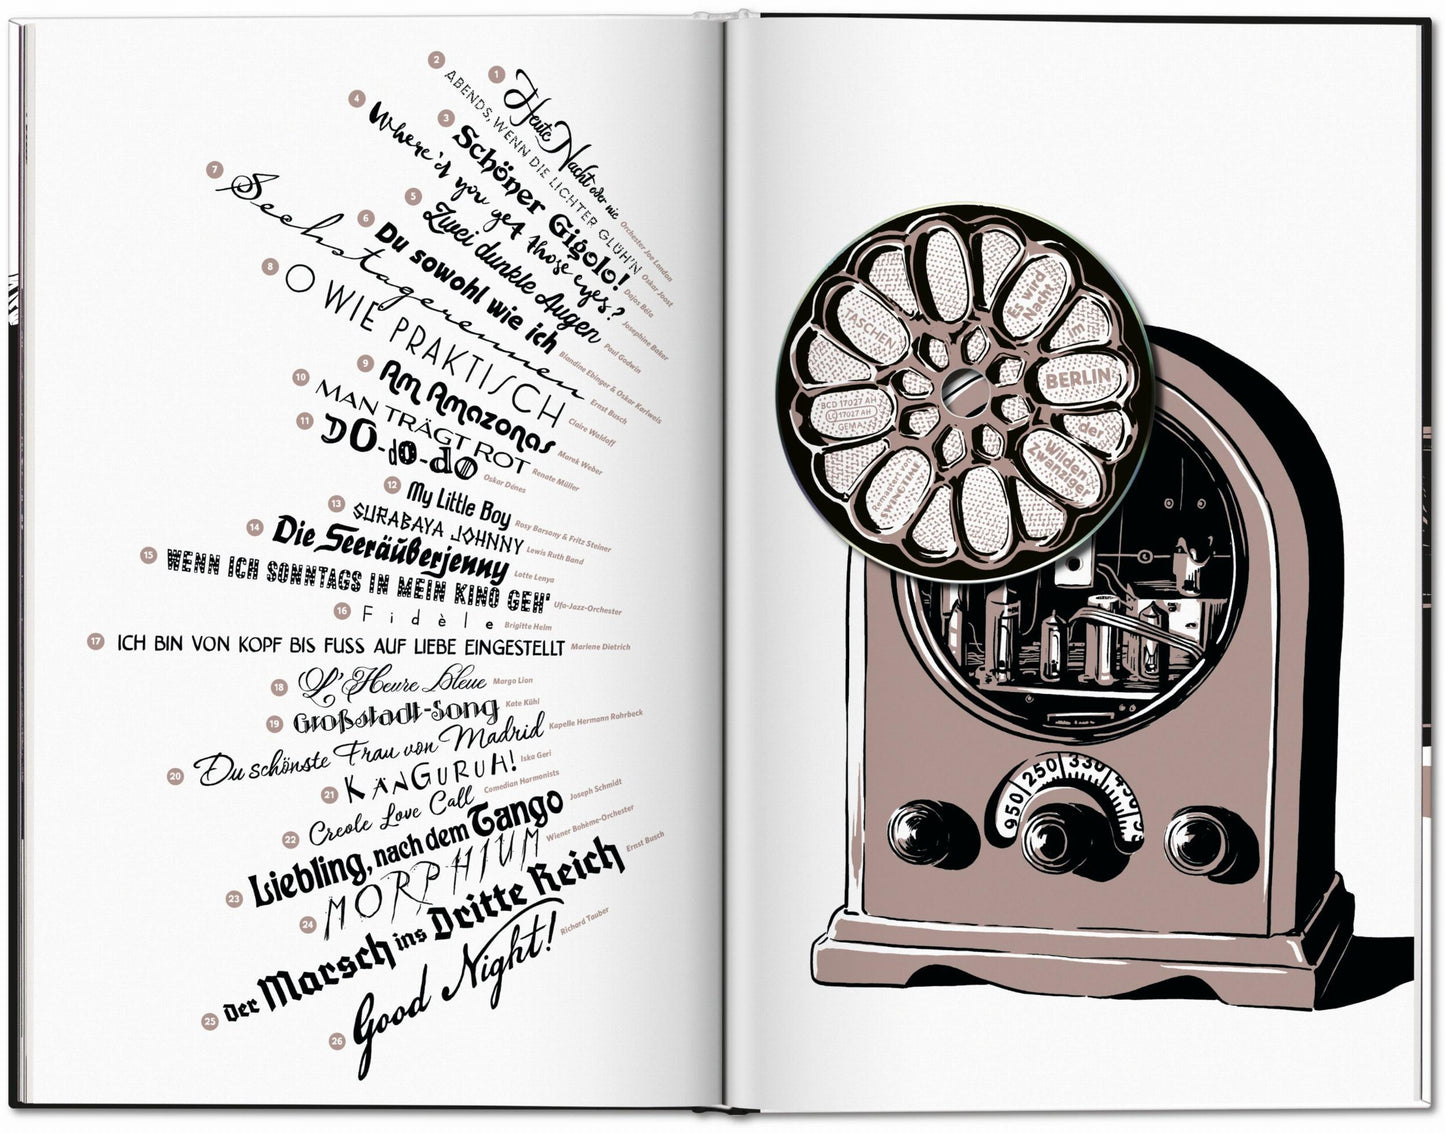 1 Heute Nacht oder nie Orchester Joe London
2 ABENDS, WENN DIE LICHTER GLÜH'N Oskar Joost
3 Schöner Gigolo! Dajos Béla
4 Where'd you get those eyes? Josephine Baker
5 Zwei dunkle Augen Paul Godwin
6 Du sowohl wie ich Blandine Ebinger & Oskar Karlweis
7 Sechstagerennen Ernst Busch
8 O WIE PRAKTISCH Claire Waldoff
9 Am Amazonas Marek Weber
10 MAN TRÄGT ROT Renate Müller
11 DO-do-do Oskar Dénes
12 My Little Boy Rosy Barsony & Fritz Steiner
13 SURABAYA JOHNNY Lewis Ruth Band
14 Die Seeräuberjenny Lotte Lenya
15 WENN ICH SONNTAGS IN MEIN KINO GEH' Ufa-Jazz-Orchester
16 Fidèle Brigitte Helm
17 ICH BIN VON KOPF BIS FUSS AUF LIEBE EINGESTELLT Marlene Dietrich
18 L'Heure bleue Margo Lion
19 Großstadt-Song Kate Kühl
20 Du schönste Frau von Madrid Kapelle Hermann Rohrbeck
21 KÄNGURUH! Iska Geri
22 Creole Love Call Comedian Harmonists
23 Liebling, nach dem Tango Joseph Schmidt
24 MORPHIUM Wiener Bohème-Orchester
25 Der Marsch ins Dritte Reich Ernst Busch
26 Good Night! Richard Tauber
Es wird
Nacht
im
BERLIN
der
Wilden
Zwanziger
TASCHEN
BCD 17027 AH
LC 17027 AH
GEMA
Remastert von
SWINGTIME
950 250 330 450